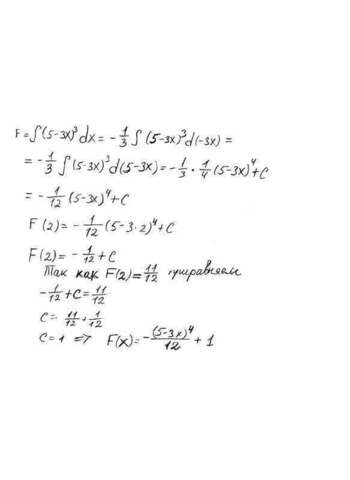 F = ∫(5-3x)³dx = -1/3 ∫ (5-3x)³d(-3x) =
= -1/3 ∫ (5-3x)³d(5-3x) = -1/3 · 1/4 (5-3x)⁴+C
= -1/12 (5-3x)⁴+C
F(2) = -1/12 (5-3·2)⁴+C
F(2) = -1/12 + C
Так как F(2) = 11/12 приравняем
-1/12 + C = 11/12
C = 11/12 + 1/12
C = 1 => F(x) = -(5-3x)⁴/12 + 1